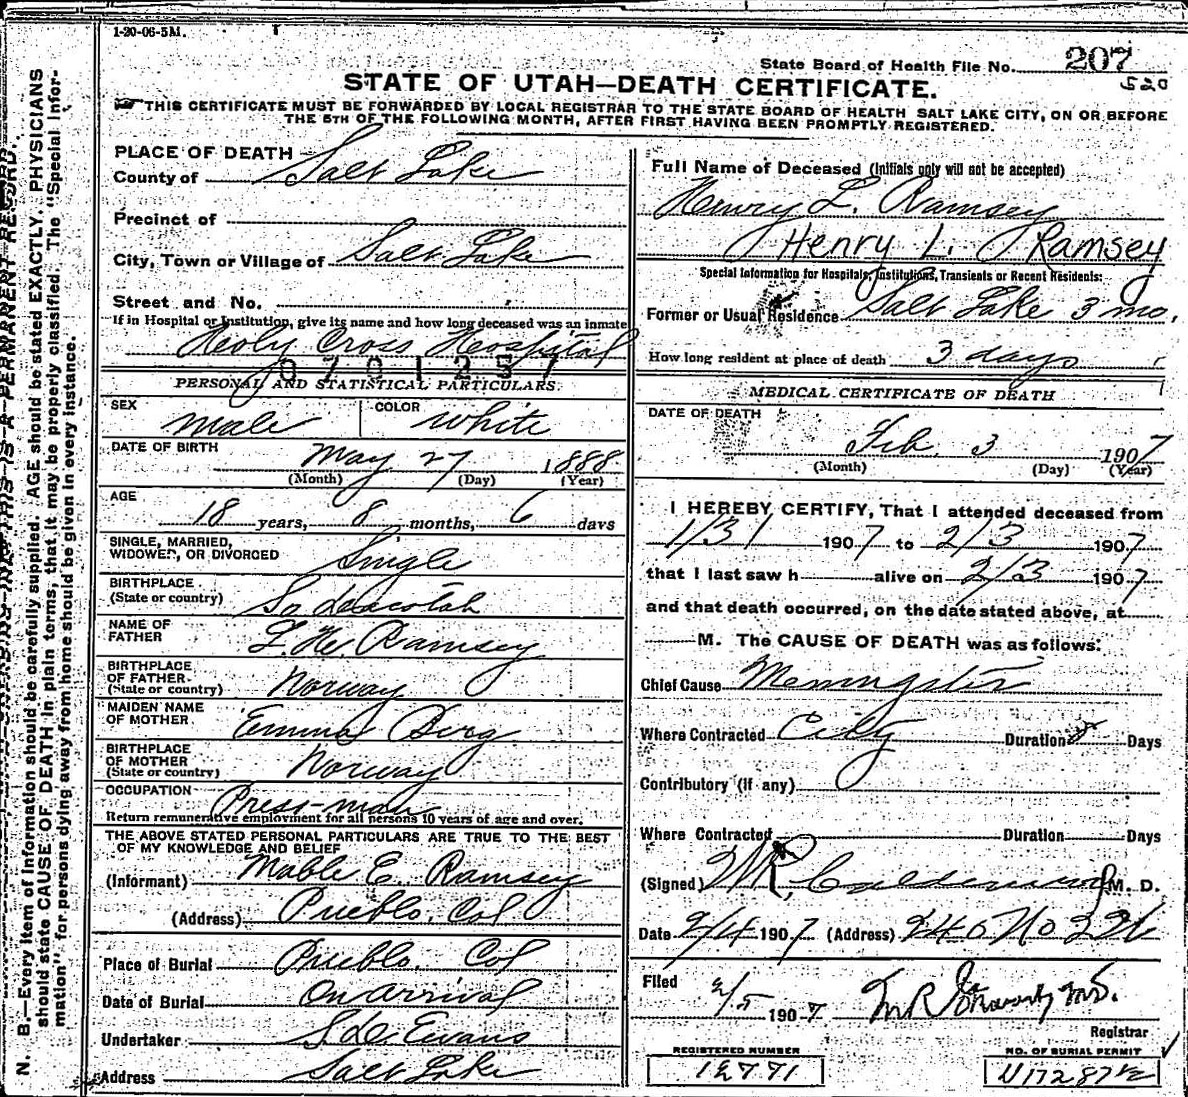 1-20-06-5M.
State Board of Health File No. 207
520
STATE OF UTAH—DEATH CERTIFICATE.
THIS CERTIFICATE MUST BE FORWARDED BY LOCAL REGISTRAR TO THE STATE BOARD OF HEALTH SALT LAKE CITY, ON OR BEFORE
THE 5TH OF THE FOLLOWING MONTH, AFTER FIRST HAVING BEEN PROMPTLY REGISTERED.
PLACE OF DEATH
County of Salt Lake
Precinct of
City, Town or Village of Salt Lake
Street and No.
If in Hospital or Institution, give its name and how long deceased was an inmate
Holy Cross Hospital
0701257
PERSONAL AND STATISTICAL PARTICULARS.
SEX Male COLOR White
DATE OF BIRTH May 27 1888
(Month) (Day) (Year)
AGE
18 years, 8 months, 6 days
SINGLE, MARRIED,
WIDOWED, OR DIVORCED Single
BIRTHPLACE
(State or country) So dacotah
NAME OF
FATHER Ramsey
BIRTHPLACE
OF FATHER
(State or country) Norway
MAIDEN NAME
OF MOTHER Emma Berg
BIRTHPLACE
OF MOTHER
(State or country) Norway
OCCUPATION Press-man
Return remunerative employment for all persons 10 years of age and over.
THE ABOVE STATED PERSONAL PARTICULARS ARE TRUE TO THE BEST
OF MY KNOWLEDGE AND BELIEF
(Informant) Mable E. Ramsey
(Address) Pueblo, Col
Place of Burial Pueblo, Col
Date of Burial On arrival
Undertaker Evans
Address Salt Lake
Full Name of Deceased (Initials only will not be accepted)
Henry L. Ramsey
Henry L. Ramsey
Special Information for Hospitals, Institutions, Transients or Recent Residents:
Former or Usual Residence Salt Lake 3 mo.
How long resident at place of death 3 days
MEDICAL CERTIFICATE OF DEATH
DATE OF DEATH
Feb 3 1907
(Month) (Day) (Year)
I HEREBY CERTIFY, That I attended deceased from
1/31 1907 to 2/3 1907
that I last saw h alive on 2/3 1907
and that death occurred, on the date stated above, at
M. The CAUSE OF DEATH was as follows:
Chief Cause Meningitis
Where Contracted City Duration 8 Days
Contributory (if any)
Where Contracted Duration Days
(Signed) M. D.
Date 2/4 1907 (Address)
Filed 2/5 1907
Registrar
REGISTERED NUMBER
12771
NO. OF BURIAL PERMIT
17287½
N. B.—Every item of information should be carefully supplied. AGE should be stated EXACTLY. PHYSICIANS
should state CAUSE OF DEATH in plain terms, that it may be properly classified. The "Special Infor-
mation" for persons dying away from home should be given in every instance.
THIS IS A PERMANENT RECORD.